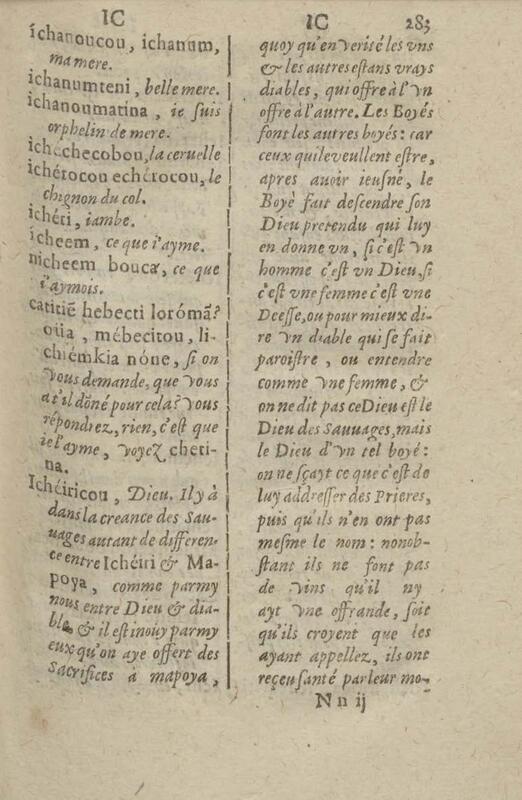 IC
ichanoucou, ichanum,
ma mere.
ichanumteni, belle mere.
ichanoumatina, ie suis
orphelin de mere.
ichechecobou, la ceruelle
ichérocou echérocou, le
chignon du col.
ichéti, iambe.
icheem, ce que i'ayme.
nicheem bouca, ce que
i'aymois.
catitiẽ hebecti lorómã?
oüa, mébecitou, li-
chiémkia nóne, si on
vous demande, que vous
at'il dõné pour cela? vous
répondrez, rien, c'est que
ie l'ayme, voyez cheti-
na.
Ichéiricou, Dieu. Il y à
dans la creance des Sau-
uages autant de differen-
ce entre Ichéiri & Ma-
poya, comme parmy
nous entre Dieu & dia-
ble, & il est inouy parmy
eux qu'on aye offert des
sacrifices a mapoya,
IC 283
quoy qu'en verité les vns
& les autres estans vrays
diables, qui offre à l'vn
offre à l'autre. Les Boyés
font les autres boyés: car
ceux qui le veullent estre,
apres auoir ieusné, le
Boyè fait descendre son
Dieu pretendu qui luy
en donne vn, si c'est vn
homme c'est vn Dieu, si
c'est vne femme c'est vne
Deesse, ou pour mieux di-
re vn diable qui se fait
paroistre, ou entendre
comme vne femme, &
on ne dit pas ce Dieu est le
Dieu des Sauuages, mais
le Dieu d'vn tel boyé:
on ne sçayt ce que c'est de
luy addresser des Prieres,
puis qu'ils n'en ont pas
mesme le nom: nonob-
stant ils ne font pas
de vins qu'il ny
ayt vne offrande, soit
qu'ils croyent que les
ayant appellez, ils ont
reçeu santé par leur mo-
N n ij